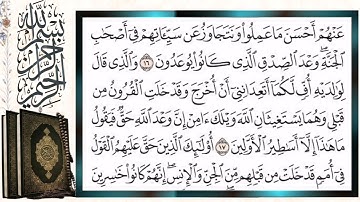 بسم الله الرحمن الرحيم
عَنْهُمْ أَحْسَنَ مَا عَمِلُوا۟ وَنَتَجَاوَزُ عَن سَيِّـَٔاتِهِمْ فِىٓ أَصْحَٰبِ
ٱلْجَنَّةِ ۖ وَعْدَ ٱلصِّدْقِ ٱلَّذِى كَانُوا۟ يُوعَدُونَ ١٦ وَٱلَّذِى قَالَ
لِوَٰلِدَيْهِ أُفٍّ لَّكُمَآ أَتَعِدَانِنِىٓ أَنْ أُخْرَجَ وَقَدْ خَلَتِ ٱلْقُرُونُ مِن
قَبْلِى وَهُمَا يَسْتَغِيثَانِ ٱللَّهَ وَيْلَكَ ءَامِنْ إِنَّ وَعْدَ ٱللَّهِ حَقٌّ فَيَقُولُ
مَا هَٰذَآ إِلَّآ أَسَٰطِيرُ ٱلْأَوَّلِينَ ١٧ أُو۟لَٰٓئِكَ ٱلَّذِينَ حَقَّ عَلَيْهِمُ ٱلْقَوْلُ
فِىٓ أُمَمٍ قَدْ خَلَتْ مِن قَبْلِهِم مِّنَ ٱلْجِنِّ وَٱلْإِنسِ ۖ إِنَّهُمْ كَانُوا۟ خَٰسِرِينَ